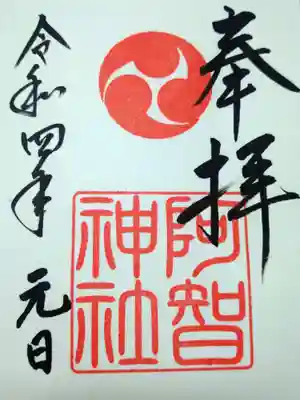 奉拝
阿智
神社
令和四年 元日